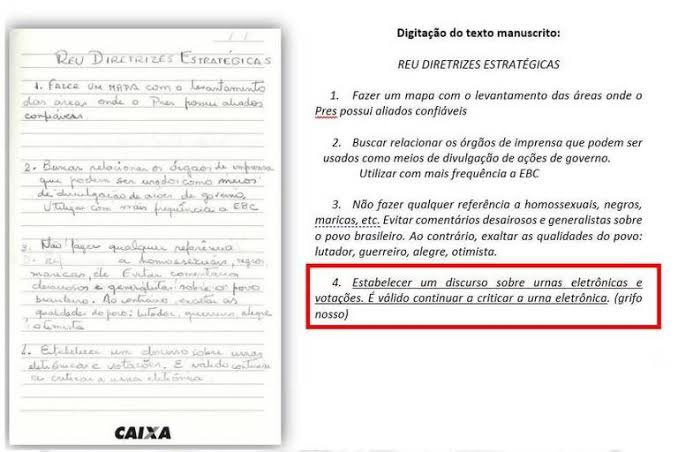 REU DIRETRIZES ESTRATÉGICAS
1. FAZER UM MAPA com o levantamento
das áreas onde o Pres possui aliados
confiáveis
2. Buscar relacionar os órgãos de imprensa
que podem ser usados como meios
de divulgação de ações de governo.
Utilizar com mais frequência a EBC
3. Não fazer qualquer referência
a homossexuais, negros,
maricas, etc. Evitar comentários
desairosos e generalistas sobre o povo
brasileiro. Ao contrário, exaltar as
qualidades do povo: lutador, guerreiro, alegre,
otimista
4. Estabelecer um discurso sobre urnas
eletrônicas e votações. É válido continuar
a criticar a urna eletrônica
CAIXA
Digitação do texto manuscrito:
REU DIRETRIZES ESTRATÉGICAS
1. Fazer um mapa com o levantamento das áreas onde o
Pres possui aliados confiáveis
2. Buscar relacionar os órgãos de imprensa que podem ser
usados como meios de divulgação de ações de governo.
Utilizar com mais frequência a EBC
3. Não fazer qualquer referência a homossexuais, negros,
maricas, etc. Evitar comentários desairosos e generalistas sobre
o povo brasileiro. Ao contrário, exaltar as qualidades do povo:
lutador, guerreiro, alegre, otimista.
4. Estabelecer um discurso sobre urnas eletrônicas e
votações. É válido continuar a criticar a urna eletrônica. (grifo
nosso)